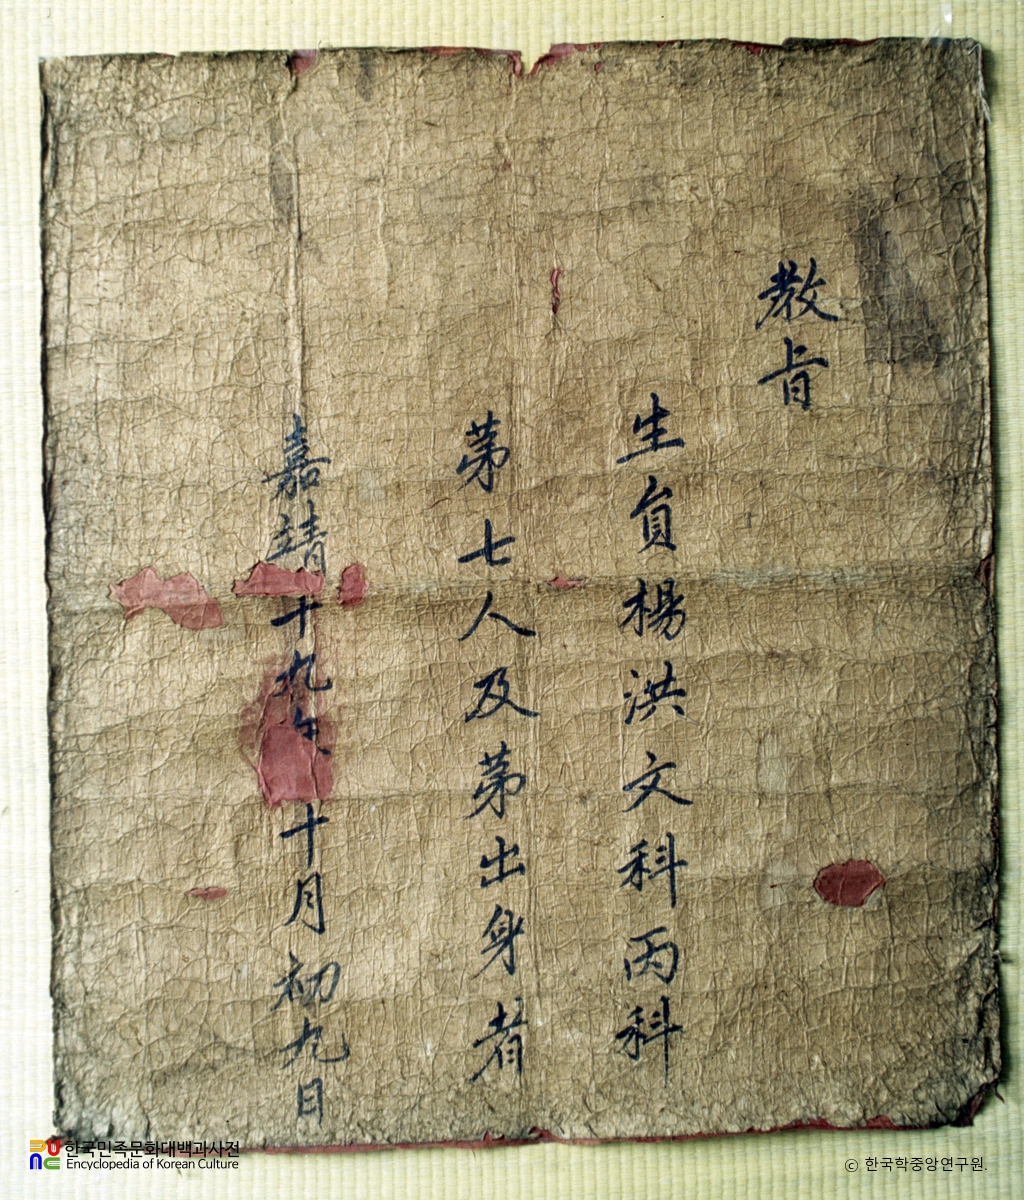 教旨
生員楊洪文科丙科
第七人及第出身者
嘉靖十九年十月初九日
한국민족문화대백과사전
Encyclopedia of Korean Culture
© 한국학중앙연구원.